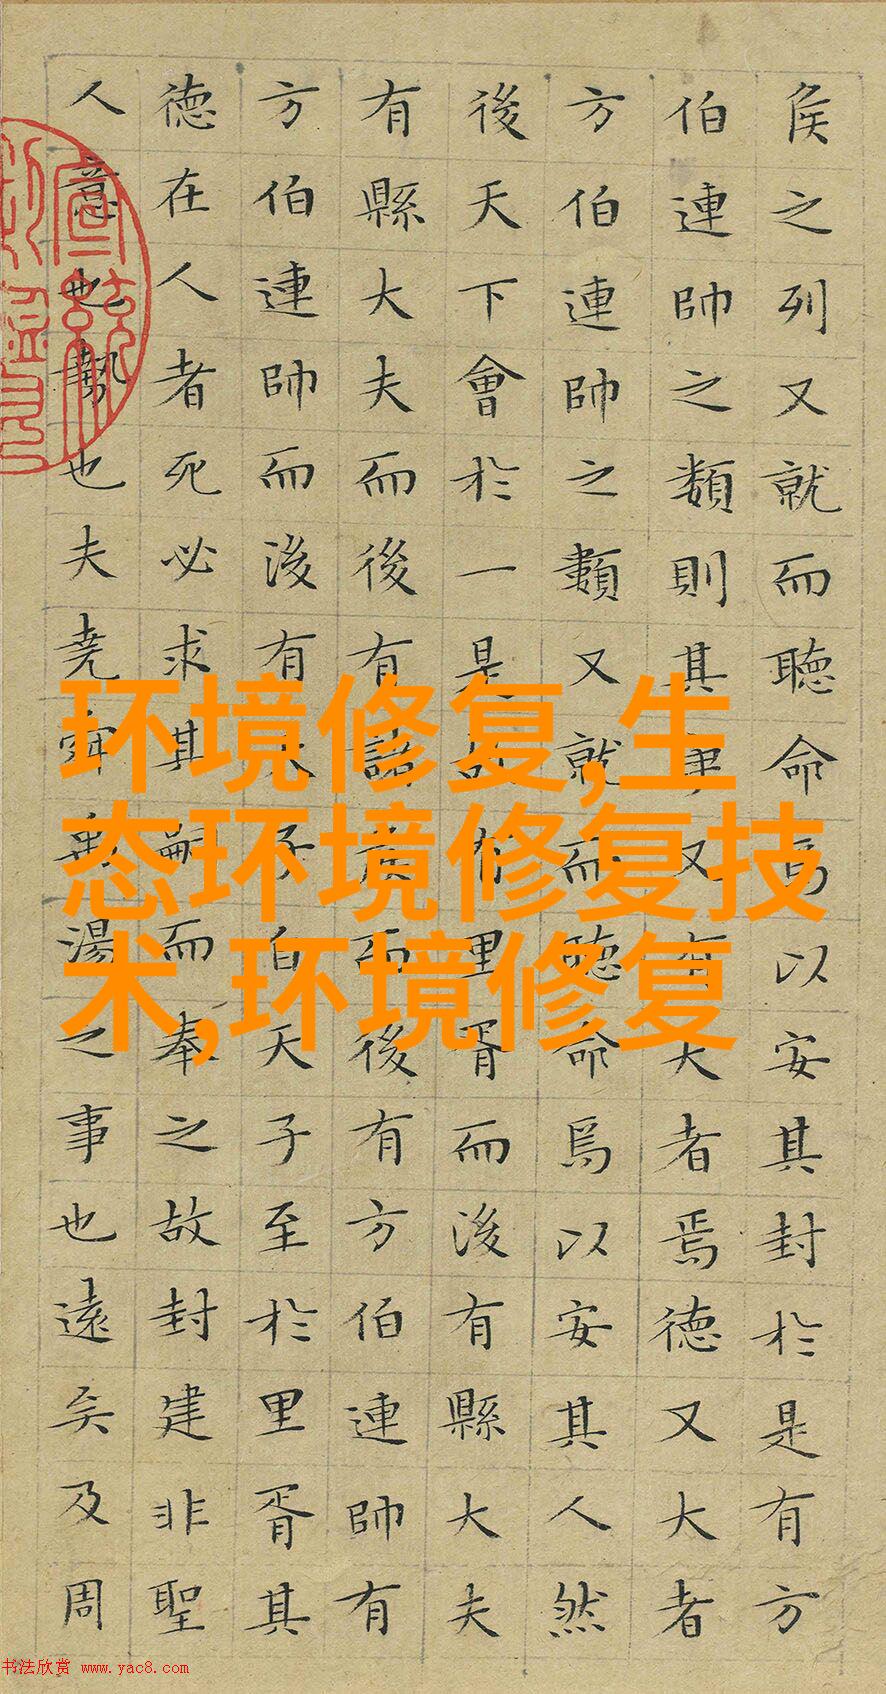 矦之列又就而聽命焉以安其封於是有方
伯連帥之類則其爭又有大者焉德又大者
方伯連帥之類又就而聽命焉以安其人然
後天下會於一是故有里胥而後有縣大夫
有縣大夫而後有諸矦而後有方伯連帥有
方伯連帥而後有天子自天子至於里胥其
德在人者死必求其嗣而奉之故封建非聖
人意也勢也夫堯舜禹湯之事也遠矣及周
环境修复,生
态环境修复技
术,环境修复
书法欣赏 www.yac8.com